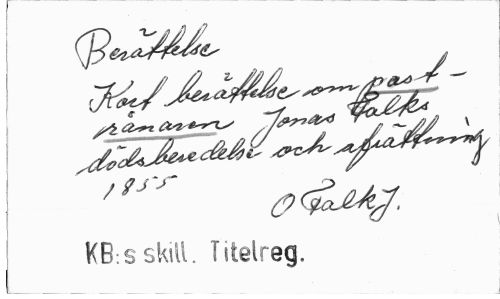 Berättelse
Kort berättelse om post-
rånaren Jonas Falks
dödsberedelse och afrättning
1855
O Falk J.
KB:s skill. Titelreg.